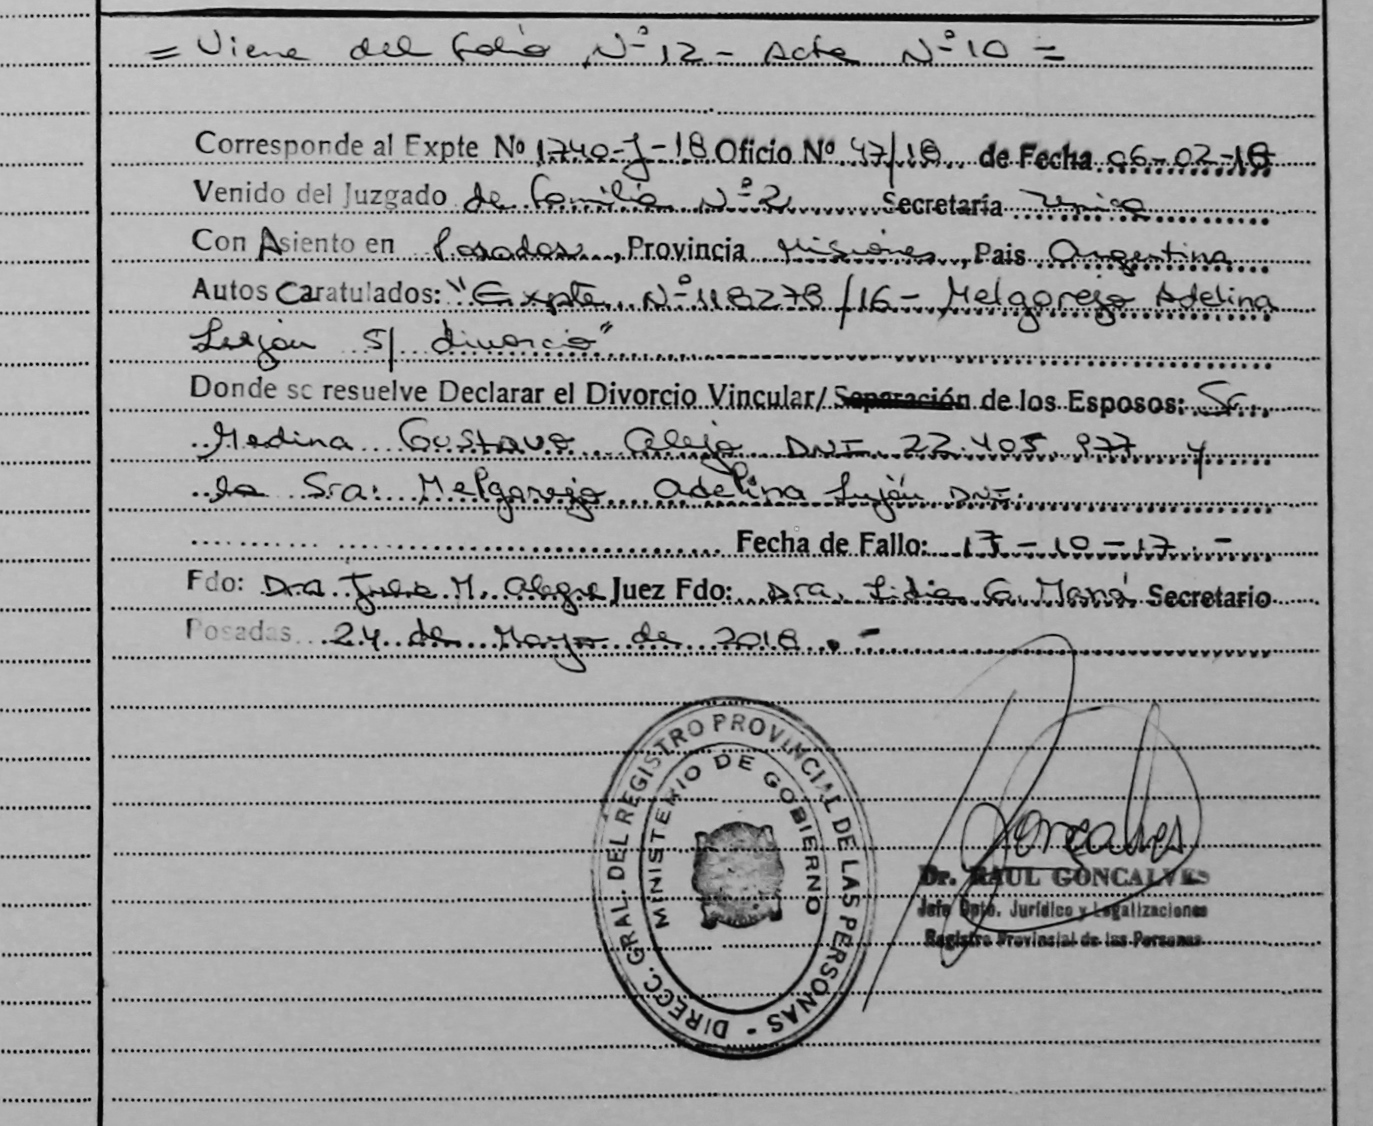 = Viene del folio Nº 12 - Acta Nº 10 =
Corresponde al Expte Nº 1740-J-18 Oficio Nº 47/18 de Fecha 06-02-18
Venido del Juzgado de Familia Nº 2 Secretaría Unica
Con Asiento en Posadas, Provincia Misiones, Pais Argentina
Autos Caratulados: "Expte Nº 118278/16 - Melgarejo Adelina
Luján S/ divorcio"
Donde se resuelve Declarar el Divorcio Vincular/ Separación de los Esposos: Sr.
Medina Gustavo Alejo DNI 22.405.977 y
la Sra: Melgarejo Adelina Luján DNI.
Fecha de Fallo: 17-10-17.-
Fdo: Dra M. Alegre Juez Fdo: Dra. Lidia Secretario
Posadas 24 de Mayo de 2018.-
DIRECC. GRAL. DEL REGISTRO PROVINCIAL DE LAS PERSONAS -
MINISTERIO DE GOBIERNO
Goncalves
Dr. RAUL GONCALVES
Jefe Dpto. Jurídico y Legalizaciones
Registro Provincial de las Personas